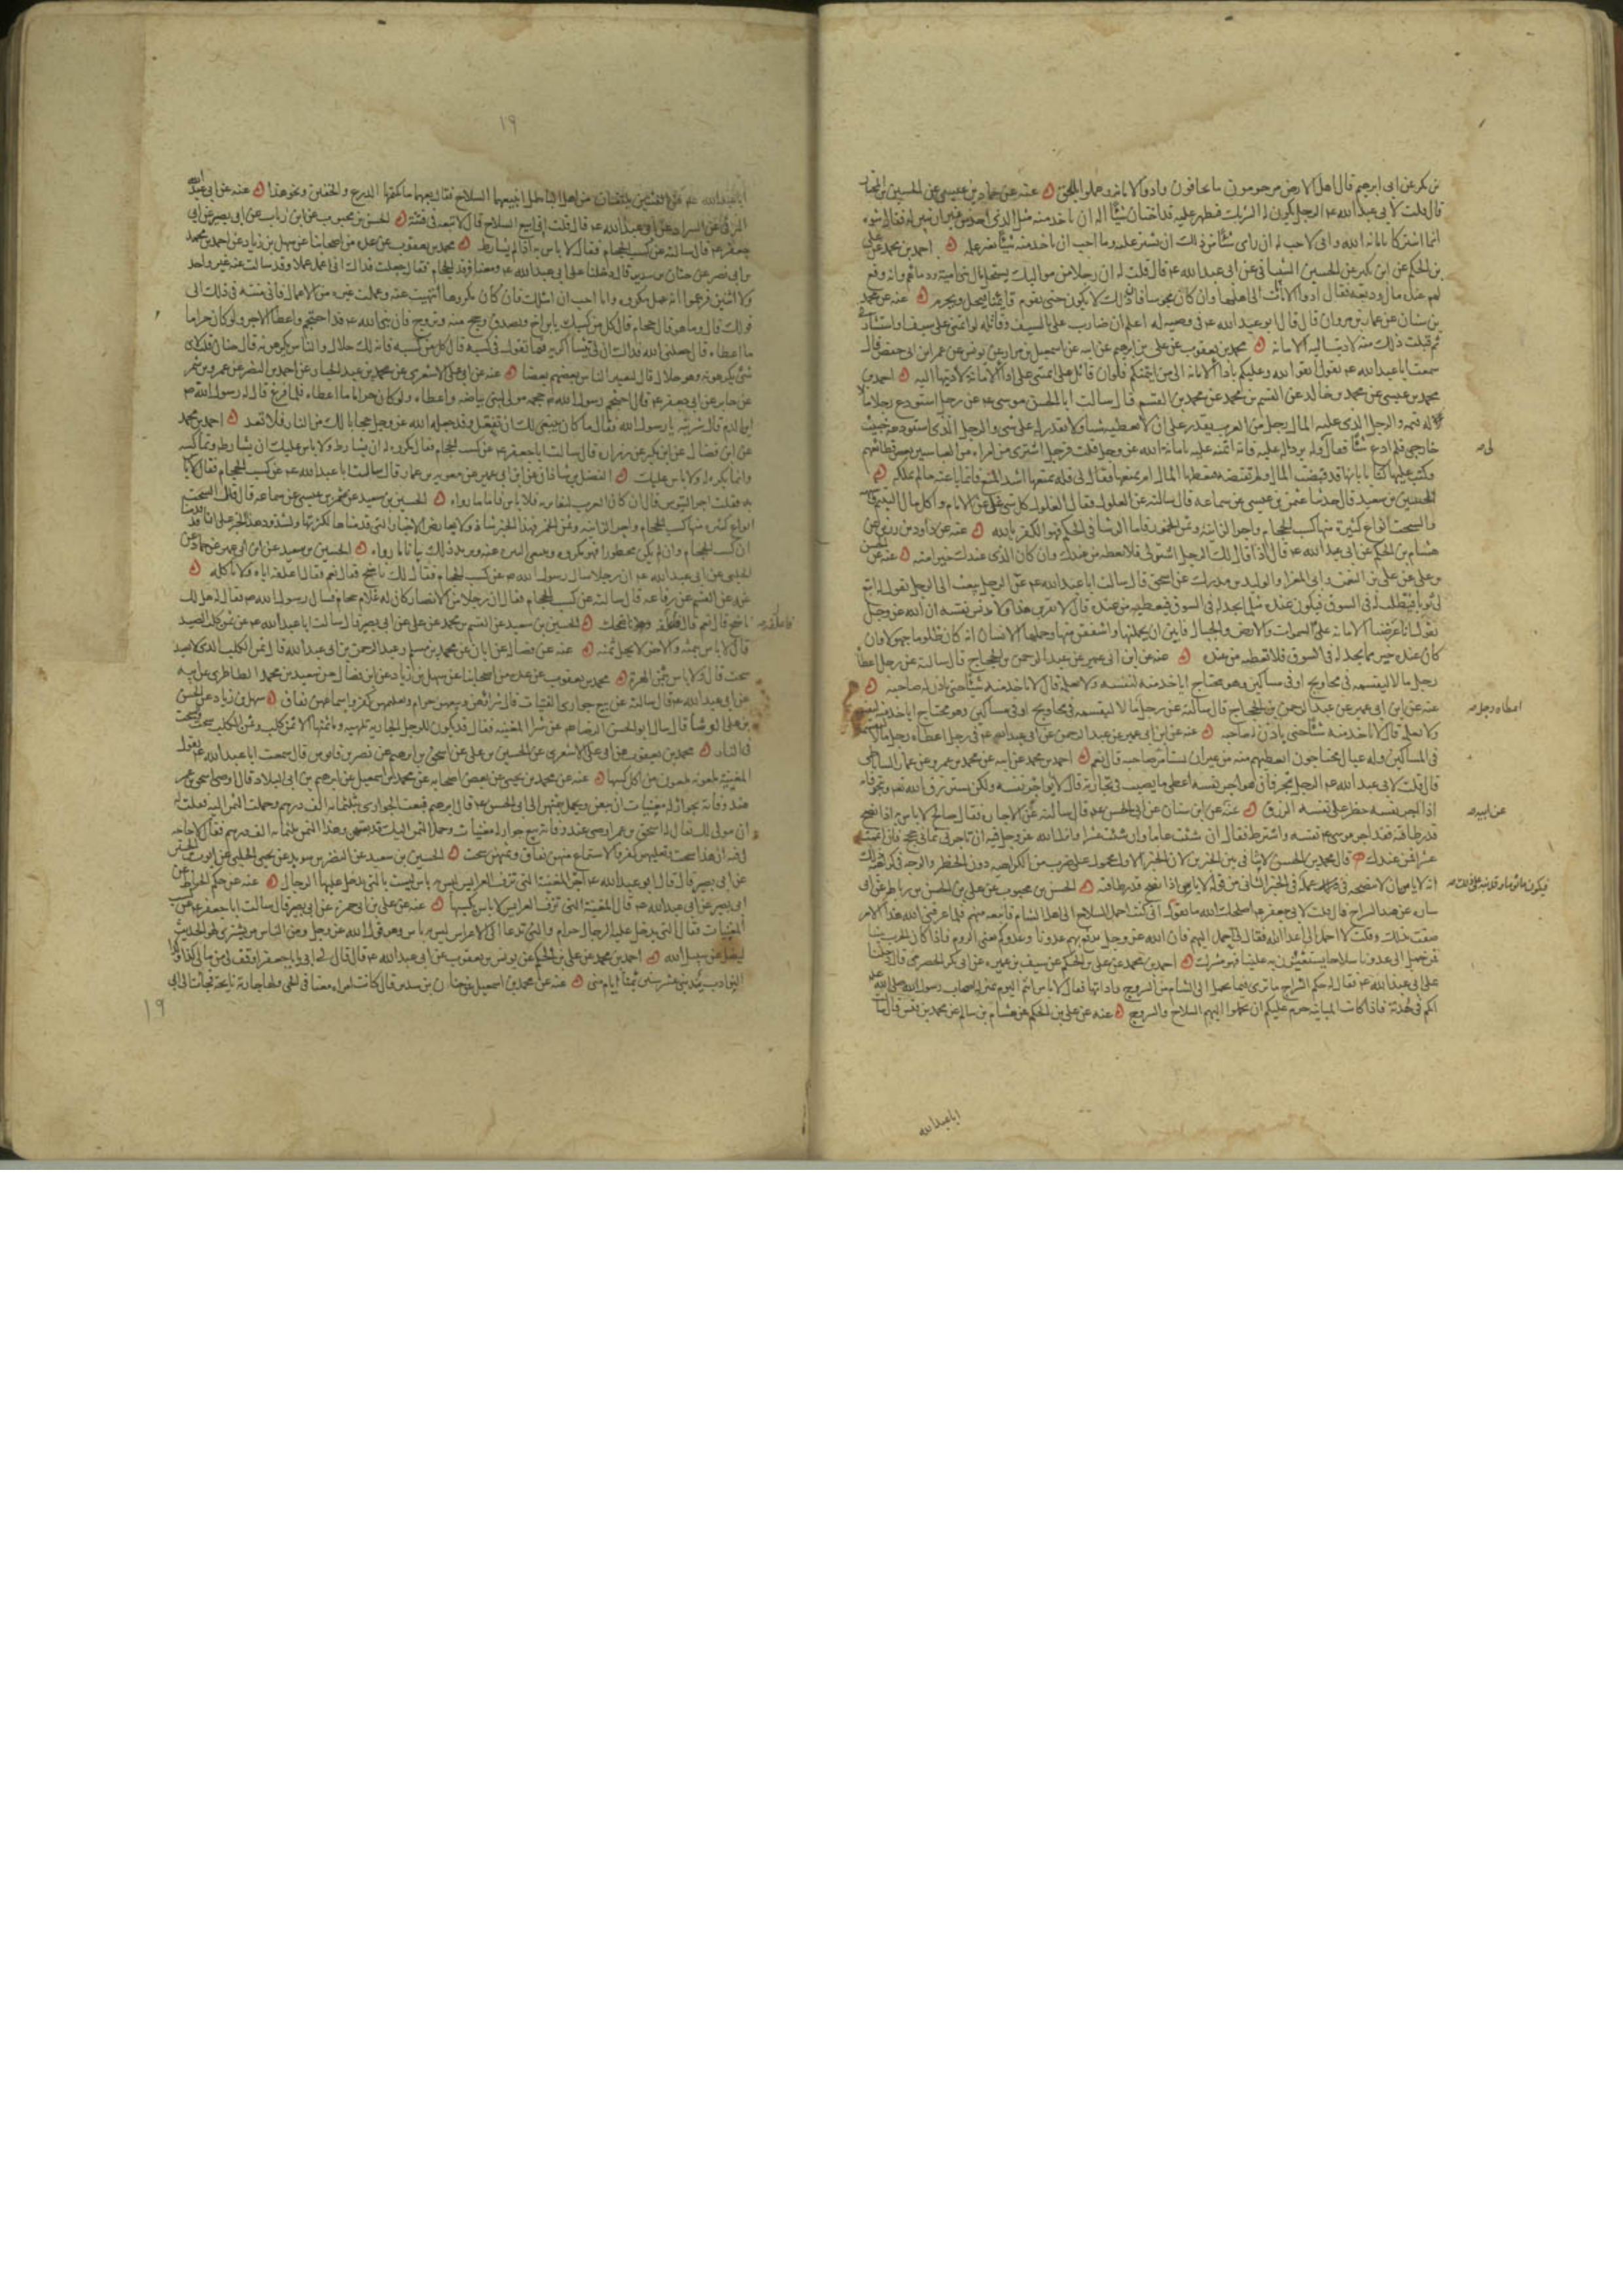 بن بكر عن ابى ابرهيم قال اهل الارض مرحومون ما يخافون وادوا الامانة وعملوا بالحق عنه عن حماد بن عيسى عن الحسين بن المختار
قال قلت لابى عبد الله ع الرجل يكون له الشريك فيظهر عليه قد اختان شيئا اله ان ياخذ منه مثل الذى اخذ من غير ان يبين له فقال شوه
انما اشتركا بامانة الله وانى لاحب له ان راى شيئا من ذلك ان يستر عليه وما احب ان ياخذ منه شيئا بغير علمه احمد بن محمد عن على
بن الحكم عن ابن بكير عن الحسين الشيبانى عن ابى عبد الله ع قال قلت له ان رجلا من مواليك يستحل مال بنى امية ودماءهم وانه وقع
لهم عنده مال وديعة فقال ادوا الامانات الى اهلها وان كان مجوسا فان ذلك لا يكون حتى يقوم قائمنا فيحل ويحرم عنه عن محمد
بن سنان عن عمار بن مروان قال قال ابو عبد الله ع فى وصيه له اعلم ان ضارب على بالسيف وقاتله لو ائتمننى على سيف واستشارنى
ثم قبلت ذلك منه لاديت اليه الامانة محمد بن يعقوب عن على بن ابرهيم عن ابيه عن اسمعيل بن مرار عن يونس عن عمر ابن ابى حفص قال
سمعت ابا عبد الله ع يقول اتقوا الله وعليكم باداء الامانة الى من ائتمنكم فلو ان قاتل على ائتمننى على اداء الامانة لاديتها اليه احمد بن
محمد بن عيسى عن محمد بن خالد عن القسم بن محمد عن محمد بن القسم قال سالت ابا الحسن موسى ع عن رجل استودع رجلا مالا
له قيمة والرجل الذى عليه المال رجل من العرب يقدر على ان لا يعطيه شيئا ولا يقدر له على شئ والرجل الذى استودعه خبيث
خارجى فلم ادع شيئا فقال قل له يرد مال عليه فانه ائتمنه عليه بامانة الله عز وجل قلت فرجل اشترى من امراة من العباسيين بعض قطائعهم
وكتب عليها كتابا بانها قد قبضت المال ولم تقبضه فيعطيها المال ام يمنعها فقال لى قل له يمنعها اشد المنع فانما باعته ما لم تملكه
الحسين بن سعيد قال حدثنا عثمن بن عيسى عن سماعه قال سالته عن الغلول فقال الغلول كل شئ غل عن الامام واكل مال اليتيم شبهه
والسحت انواع كثيرة منها كسب الحجام واجر الزانية وثمن الخمر فاما الرشا فى الحكم فهو الكفر بالله عنه عن داود بن رزين عن
هشام بن الحكم عن ابى عبد الله ع قال اذا قال لك الرجل اشتر لى فلا تعطه من عندك وان كان الذى عندك خيرا منه عنه عن الحسن
بن على عن على بن النعمن وابى المغرا والوليد بن مدرك عن اسحق قال سالت ابا عبد الله ع عن الرجل يبعث الى الرجل يقول له ابتع
لى ثوبا فيطلب له فى السوق فيكون عنده مثل ما يجد له فى السوق فيعطيه من عنده قال لا يقربن هذا ولا يدنس نفسه ان الله عز وجل
يقول انا عرضنا الامانة على السموات والارض والجبال فابين ان يحملنها واشفقن منها وحملها الانسان انه كان ظلوما جهولا وان
كان عنده خير مما يجد له فى السوق فلا تعطيه من عنده عنه عن ابن ابى عمير عن عبد الرحمن بن الحجاج قال سالته عن رجل اعطاه
رجل مالا ليقسمه فى محاويج او فى مساكين وهو محتاج اياخذ منه لنفسه ولا يعلمه قال لا ياخذ منه شيئا حتى ياذن له صاحبه
عنه عن ابن ابى عمير عن عبد الرحمن بن الحجاج قال سالته عن رجل مالا ليقسمه فى محاويج او فى مساكين وهو محتاج اياخذ منه لنفسه
ولا يعلمه قال لا ياخذ منه شيئا حتى ياذن له صاحبه عنه عن ابن ابى عمير عن عبد الرحمن عن ابى عبد الله ع فى رجل اعطاه رجل مالا ليقسمه
فى المساكين وله عيال محتاجون ايعطيهم منه من غير ان يستامر صاحبه قال نعم احمد بن محمد عن ابيه عن محمد بن عمرو عن عمار الساباطى
قال قلت لابى عبد الله ع الرجل يتجر فان هو اجر نفسه اعطى ما يصيب فى تجارته قال لا يواجر نفسه ولكن يسترزق الله تعم ويتجر فانه
اذا اجر نفسه حظر على نفسه الرزق عنه عن ابن سنان عن ابى الحسن ع قال سالته عن الاجارة فقال صالح لا باس به اذا نصح
قدر طاقته فقد اجر موسى ع نفسه واشترط فقال ان شئت ثمانيا وان شئت عشرا وانزل الله عز وجل فيه ان تاجرنى ثمانى حجج فان اتممت
عشرا فمن عندك قال محمد بن الحسن لا تنافى بين الخبرين لان الخبر الاول محمول على ضرب من الكراهيه دون الحظر والوجه فى كراهة ذلك
ساره عن هند السراج قال قلت لابى جعفر ع اصلحك الله ما تقول انى كنت احمل السلاح الى اهل الشام فابيعه منهم فلما عرفنى الله هذا الامر
ضقت بذلك وقلت لا احمل الى اعداء الله فقال لى احمل اليهم فان الله عز وجل يدفع بهم عدونا وعدوكم يعنى الروم فاذا كان الحرب بيننا
فمن حمل الى عدونا سلاحا يستعينون به علينا فهو مشرك احمد بن محمد عن على بن الحكم عن سيف بن عميره عن ابى بكر الحضرمى قال دخلنا
على ابى عبد الله ع فقال له حكم السراج ما ترى فيما يحمل الى الشام من السروج واداتها فقال لا باس انتم اليوم بمنزلة اصحاب رسول الله صلى الله عليه
انكم فى هدنة فاذا كانت المباينة حرم عليكم ان تحملوا اليهم السلاح والسروج عنه عن على بن الحكم عن هشام بن سالم عن محمد بن قيس قال سالت
اعطاه رجل
عن ابيه
ابا عبد الله
١٩
ابا عبد الله ع عن الفئتين يلتقيان من اهل الباطل ابيعهما السلاح فقال بعهما ما يكنهما الدرع والخفين ونحو هذا عنه عن ابى عبد الله
البرقى عن السراد عن ابى عبد الله ع قال قلت انى ابيع السلاح قال لا تبعه فى فتنة الحسن بن محبوب عن ابن رئاب عن ابى بصير عن ابى
جعفر ع قال سالته عن كسب الحجام فقال لا باس به اذا لم يشارط محمد بن يعقوب عن عدة من اصحابنا عن سهل بن زياد عن احمد بن محمد
بن ابى نصر عن حنان بن سدير قال دخلنا على ابى عبد الله ع ومعنا فرقد الحجام فقال جعلت فداك انى اعمل عملا وقد سالت عنه غير واحد
ولا اثنين فزعموا انه عمل مكروه وانا احب ان اسئلك فان كان مكروها انتهيت عنه وعملت غيره من الاعمال فانى منته فى ذلك الى
قولك قال وما هو قال حجام قال كل من كسبك يا بن اخ وتصدق وحج منه وتزوج فان نبى الله ع قد احتجم واعطا الاجر ولو كان حراما
ما اعطاه قال جعلنى الله فداك ان لى تيسا اكريه فما تقول فى كسبه قال كل من كسبه فانه لك حلال والناس يكرهونه قال حنان قلت لاى
شئ يكرهونه وهو حلال قال لتعيير الناس بعضهم بعضا عنه عن ابى على الاشعرى عن محمد بن عبد الجبار عن احمد بن النضر عن عمرو بن شمر
عن جابر عن ابى جعفر ع قال احتجم رسول الله ص حجمه مولى لبنى بياضه واعطاه ولو كان حراما ما اعطاه فلما فرغ قال له رسول الله ص
اين الدم قال شربته يا رسول الله فقال ما كان ينبغى لك ان تفعل وقد جعله الله عز وجل حجابا لك من النار فلا تعد احمد بن محمد
عن ابن فضال عن ابن بكير عن زرارة قال سالت ابا جعفر ع عن كسب الحجام فقال مكروه له ان يشارط ولا باس عليك ان تشارطه وتماكسه
وانما يكره له ولا باس عليك الفضل بن شاذان عن ابن ابى عمير عن معويه بن عمار قال سالت ابا عبد الله ع عن كسب الحجام فقال لا باس
به فقلت اجر التيوس قال ان كان العرب لتعاير به فلا باس فاما ما رواه الحسين بن سعيد عن عثمن بن عيسى عن سماعه قال قال السحت
انواع كثيره منها كسب الحجام واجر الزانيه وثمن الخمر فهذا الخبر شاذ ولا يعارض الاخبار التى قدمناها لكثرتها ولشذوذ هذا الخبر على انا قد بينا
ان كسب الحجام وان لم يكن محظورا فهو مكروه الحسين بن سعيد عن ابن ابى عمير عن حماد عن
الحلبى عن ابى عبد الله ع ان رجلا سال رسول الله ص عن كسب الحجام فقال لك ناضح فقال نعم فقال اعلفه اياه ولا تاكله
عنه عن القسم عن رفاعه قال سالته عن كسب الحجام فقال ان رجلا من الانصار كان له غلام حجام فسال رسول الله ص فقال له هل لك
ناضح قال نعم قال فاعلفه ناضحك الحسين بن سعيد عن القسم بن محمد عن على عن ابى بصير قال سالت ابا عبد الله ع عن ثمن كلب الصيد
قال لا باس بثمنه والاخر لا يحل ثمنه عنه عن فضالة عن ابان عن محمد بن مسلم وعبد الرحمن بن ابى عبد الله قال ثمن الكلب الذى لا يصيد
سحت قال ولا باس بثمن الهرة محمد بن يعقوب عن عدة من اصحابنا عن سهل بن زياد عن ابن فضال عن سعيد بن محمد الطاطرى عن ابيه
عن ابى عبد الله ع قال سالته عن بيع جوارى المغنيات قال شراؤهن وبيعهن حرام وتعليمهن كفر واستماعهن نفاق سهل بن زياد عن الحسن
بن على الوشا قال سال ابو الحسن الرضا ع عن شرا المغنيه فقال قد يكون للرجل الجارية تلهيه وما ثمنها الا ثمن كلب وثمن الكلب سحت والسحت
فى النار محمد بن يعقوب عن ابى على الاشعرى عن الحسين بن على عن اسحق بن ابرهيم عن نصر بن قابوس قال سمعت ابا عبد الله ع يقول
المغنية ملعونه ملعون من اكل كسبها عنه عن محمد بن يحيى عن بعض اصحابه عن محمد بن اسمعيل عن ابرهيم بن ابى البلاد قال اوصى اسحق بن عمر
عند وفاته بجوار له مغنيات ان نبيعهن ونحمل ثمنهن الى ابى الحسن ع قال ابرهيم فبعت الجوارى بثلثمائة الف درهم وحملت الثمن اليه فقلت له
ان مولى لك يقال له اسحق بن عمر اوصى عند وفاته ببيع جوار له مغنيات وحمل الثمن اليك وقد بعتهن وهذا الثمن ثلثمائة الف درهم فقال لا حاجه
لى فيه ان هذا سحت وتعليمهن كفر والاستماع منهن نفاق وثمنهن سحت الحسين بن سعيد عن النضر بن سويد عن يحيى الحلبى عن ايوب بن الحر
عن ابى بصير قال قال ابو عبد الله ع اجر المغنية التى تزف العرايس ليس به باس ليست بالتى يدخل عليها الرجال عنه عن حكم الخياط عن
ابى بصير عن ابى عبد الله ع قال المغنية التى تزف العرايس لا باس بكسبها عنه عن على بن ابى حمزة عن ابى بصير قال سالت ابا جعفر ع عن كسب
المغنيات فقال التى يدخل عليها الرجال حرام والتى تدعا الى الاعراس ليس به باس وهو قول الله عز وجل ومن الناس من يشترى لهو الحديث
ليضل عن سبيل الله احمد بن محمد عن على بن الحكم عن يونس بن يعقوب عن ابى عبد الله ع قال قال لى ابى يا جعفر اوقف لى من مالى كذا وكذا
النوادب تندبنى عشر سنين بمنا ايام منى عنه عن محمد بن اسمعيل عن حنان بن سدير قال كانت امراة معنا فى الحى ولها جارية نايحة فجائت الى ابى
١٩